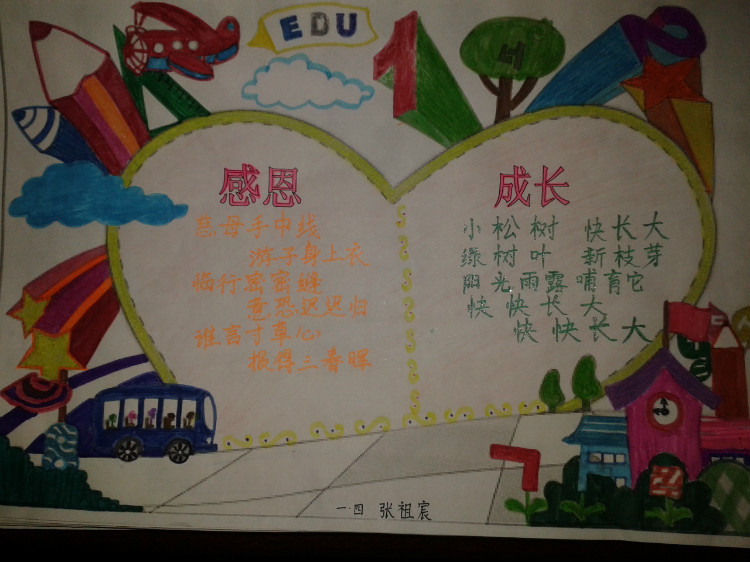 EDU
1
4
2
感恩
慈母手中线
游子身上衣
临行密密缝
意恐迟迟归
谁言寸草心
报得三春晖
成长
小松树 快长大
绿树叶 新枝芽
阳光雨露哺育它
快快长大
快快长大
一.四 张祖宸